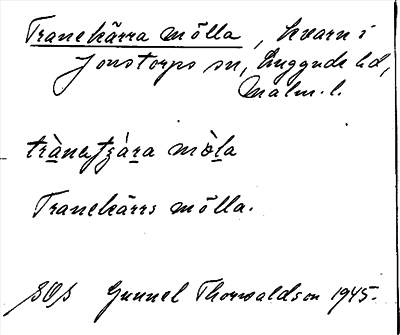 Tranekärra mölla, kvarn i
Jonstorps sn, Luggude hd,
Malm. l.
trànetʒára mòla
Tranekärrs mölla.
SOS Gunnel Thorwaldson 1945.